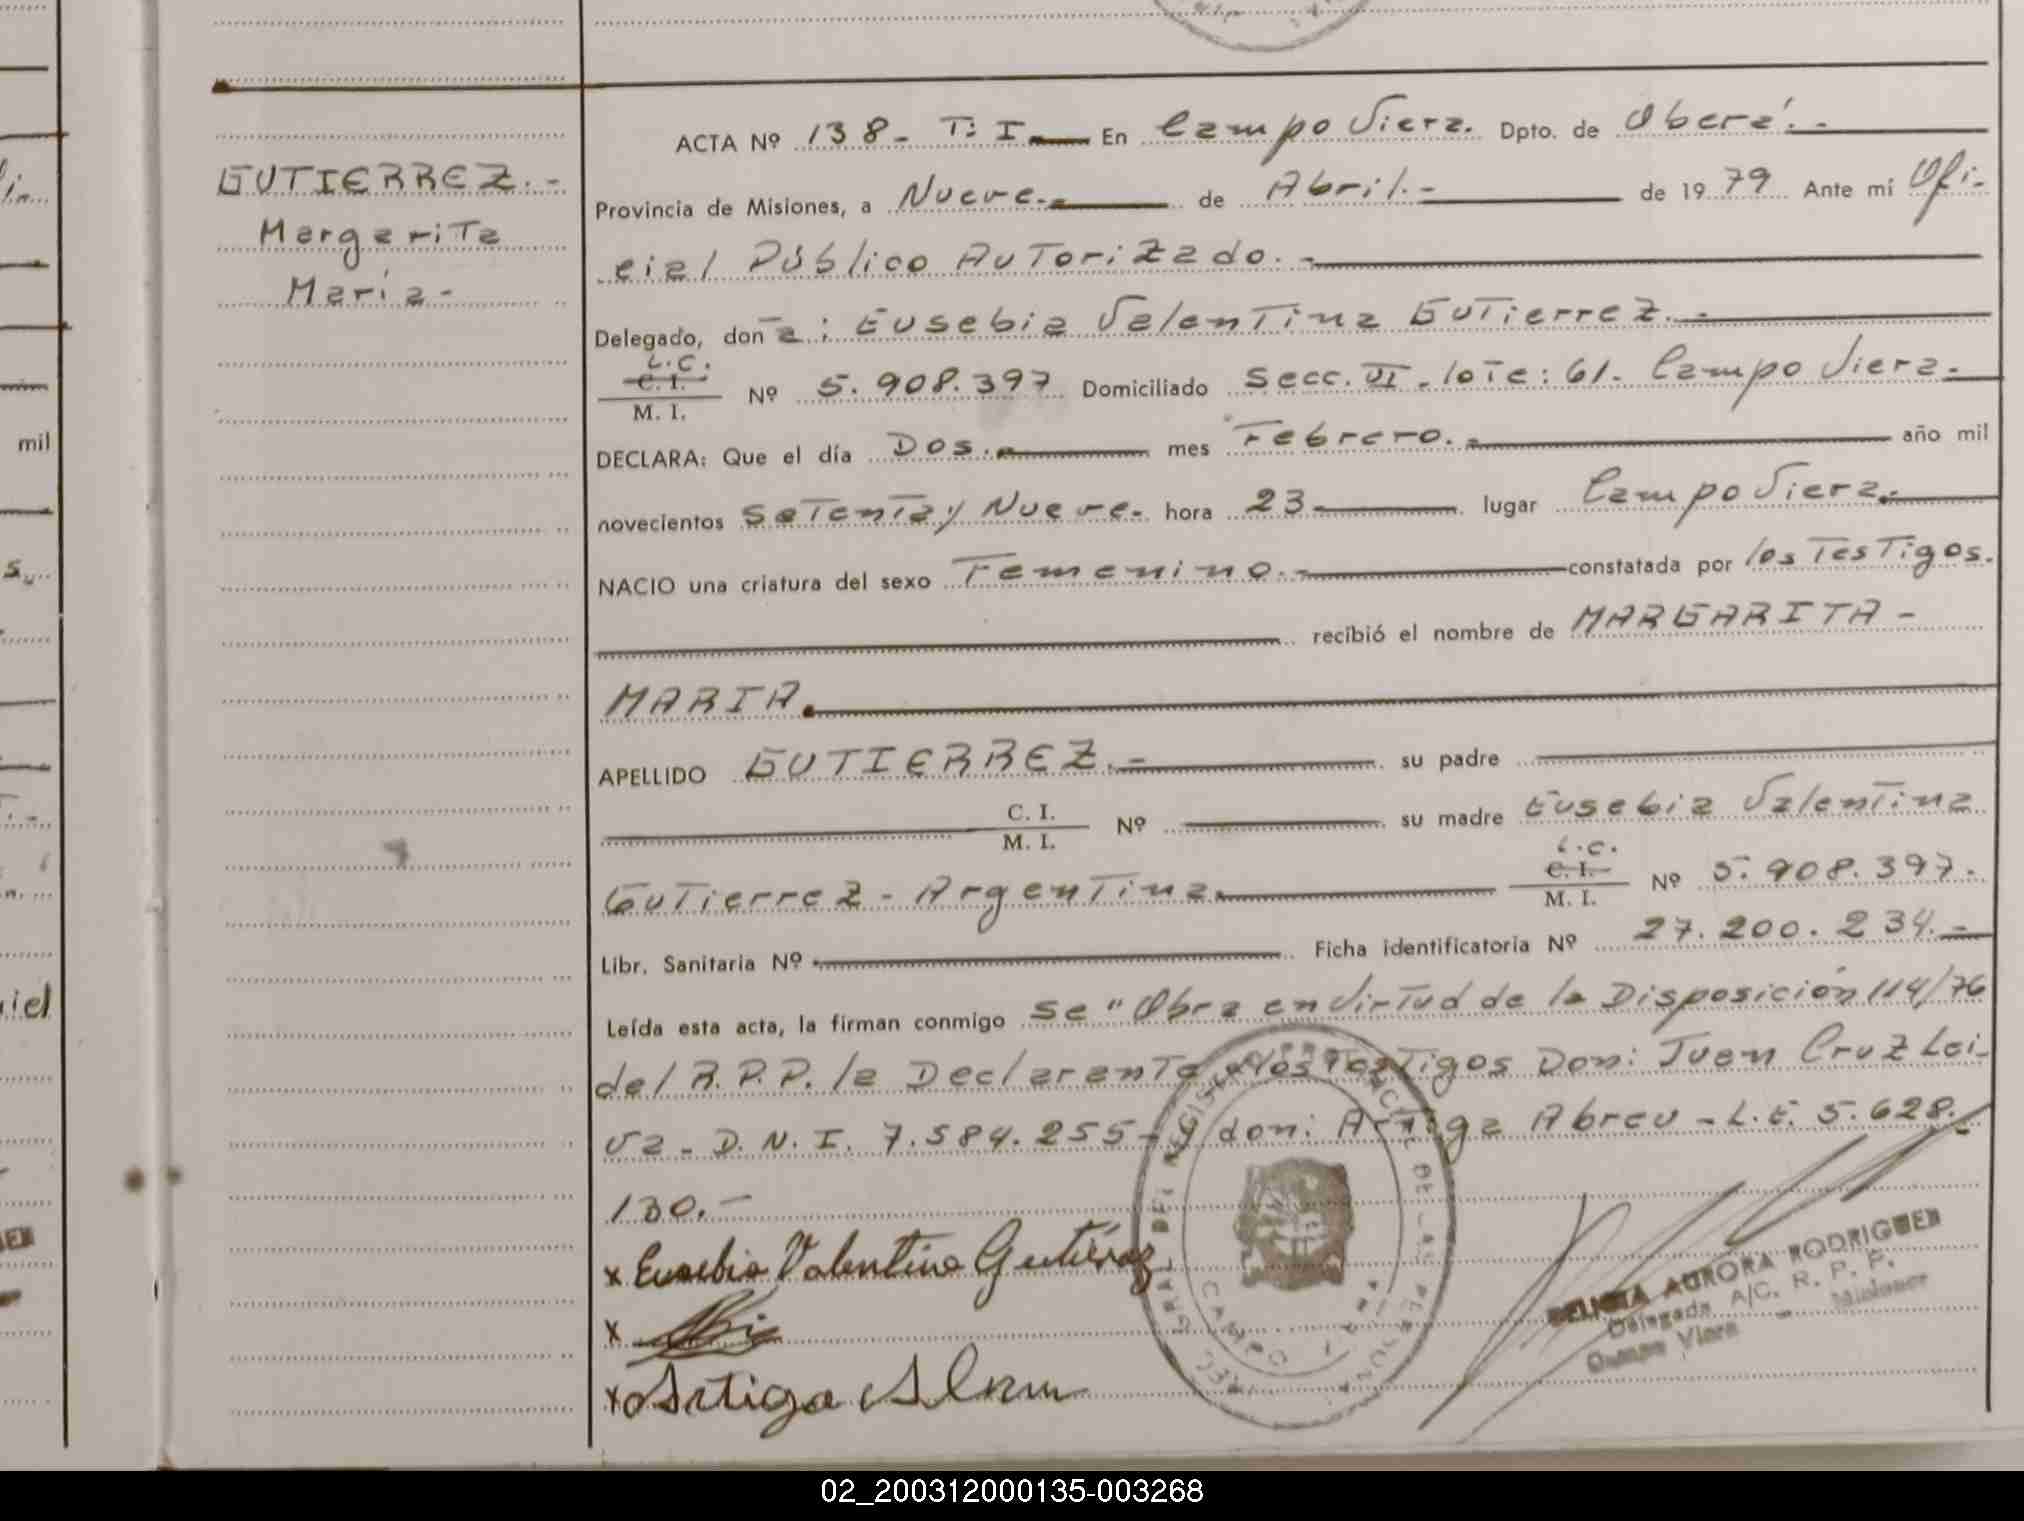 GUTIERREZ.-
Margarita
María-
ACTA Nº 138- T: I. En Campo Viera. Dpto. de Oberá.-
Provincia de Misiones, a Nueve.- de Abril.- de 1979 Ante mí Ofi-
cial Público Autorizado.-
Delegado, don a : Eusebia Valentina Gutierrez.-
L.C.
C. I.
M. I.
Nº 5.908.397 Domiciliado Secc. VI - lote: 61. Campo Viera.-
DECLARA: Que el día Dos.- mes Febrero.- año mil
novecientos Setenta y Nueve.- hora 23 lugar Campo Viera.-
NACIO una criatura del sexo Femenino.- constatada por los Testigos.
recibió el nombre de MARGARITA -
MARIA.
APELLIDO GUTIERREZ.- su padre
C. I.
M. I.
Nº su madre Eusebia Valentina
Gutierrez - Argentina.
L.C.
C. I.
M. I.
Nº 5.908.397.
Libr. Sanitaria Nº Ficha identificatoria Nº 27.200.234.-
Leída esta acta, la firman conmigo se "Obra en virtud de la Disposición 114/76
del R.P.P. la Declarante y los Testigos Don: Juan Cruz Lei-
va - D.N.I. 7.584.255- y don: Artiga Abreu - L.E. 5.628.
130.-
x Eusebia Valentina Gutiérrez
x
x Artiga Abreu
DIREC. GRAL. DEL REGISTRO PROVINCIAL DE LAS PERSONAS
CAMPO VIERA
DELICIA AURORA RODRIGUEZ
Delegada A/C. R. P. P.
Campo Viera - Misiones
mil
iel
02_200312000135-003268